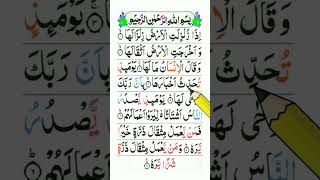 بِسْمِ اللهِ الرَّحْمٰنِ الرَّحِيْمِ
اِذَا زُلْزِلَتِ الْاَرْضُ زِلْزَالَهَا ۝
وَاَخْرَجَتِ الْاَرْضُ اَثْقَالَهَا ۝
وَقَالَ الْاِنْسَانُ مَا لَهَا ۝ يَوْمَئِذٍ
تُحَدِّثُ اَخْبَارَهَا ۝ بِاَنَّ رَبَّكَ
اَوْحٰى لَهَا ۝ يَوْمَئِذٍ يَّصْدُرُ
النَّاسُ اَشْتَاتًا لِّيُرَوْا اَعْمَالَهُمْ ۝
فَمَنْ يَّعْمَلْ مِثْقَالَ ذَرَّةٍ خَيْرًا
يَّرَهٗ ۝ وَمَنْ يَّعْمَلْ مِثْقَالَ ذَرَّةٍ
شَرًّا يَّرَهٗ ۝